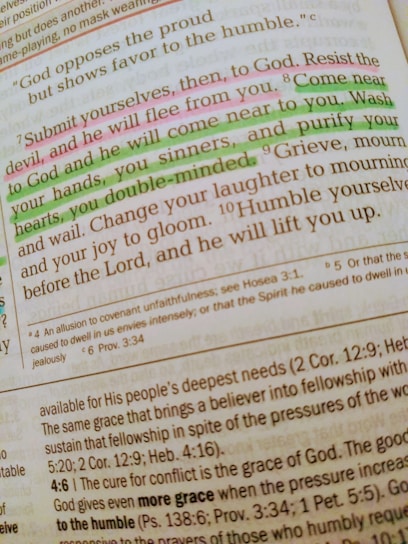 elves.
eir position
ng but does another.
me-playing, no mask wearing
“God opposes the proud
but shows favor to the humble.” c
7 Submit yourselves, then, to God. Resist the
devil, and he will flee from you. 8 Come near
to God and he will come near to you. Wash
your hands, you sinners, and purify your
hearts, you double-minded. 9 Grieve, mourn
and wail. Change your laughter to mourning
and your joy to gloom. 10 Humble yourselve
before the Lord, and he will lift you up.
a 4 An allusion to covenant unfaithfulness; see Hosea 3:1. b 5 Or that the s
caused to dwell in us envies intensely; or that the Spirit he caused to dwell in
jealously c 6 Prov. 3:34
available for His people's deepest needs (2 Cor. 12:9; Heb
The same grace that brings a believer into fellowship with
sustain that fellowship in spite of the pressures of the wo
5:20; 2 Cor. 12:9; Heb. 4:16).
4:6 | The cure for conflict is the grace of God. The good
God gives even more grace when the pressure increas
to the humble (Ps. 138:6; Prov. 3:34; 1 Pet. 5:5). Go
responsive to the prayers of those who humbly reque